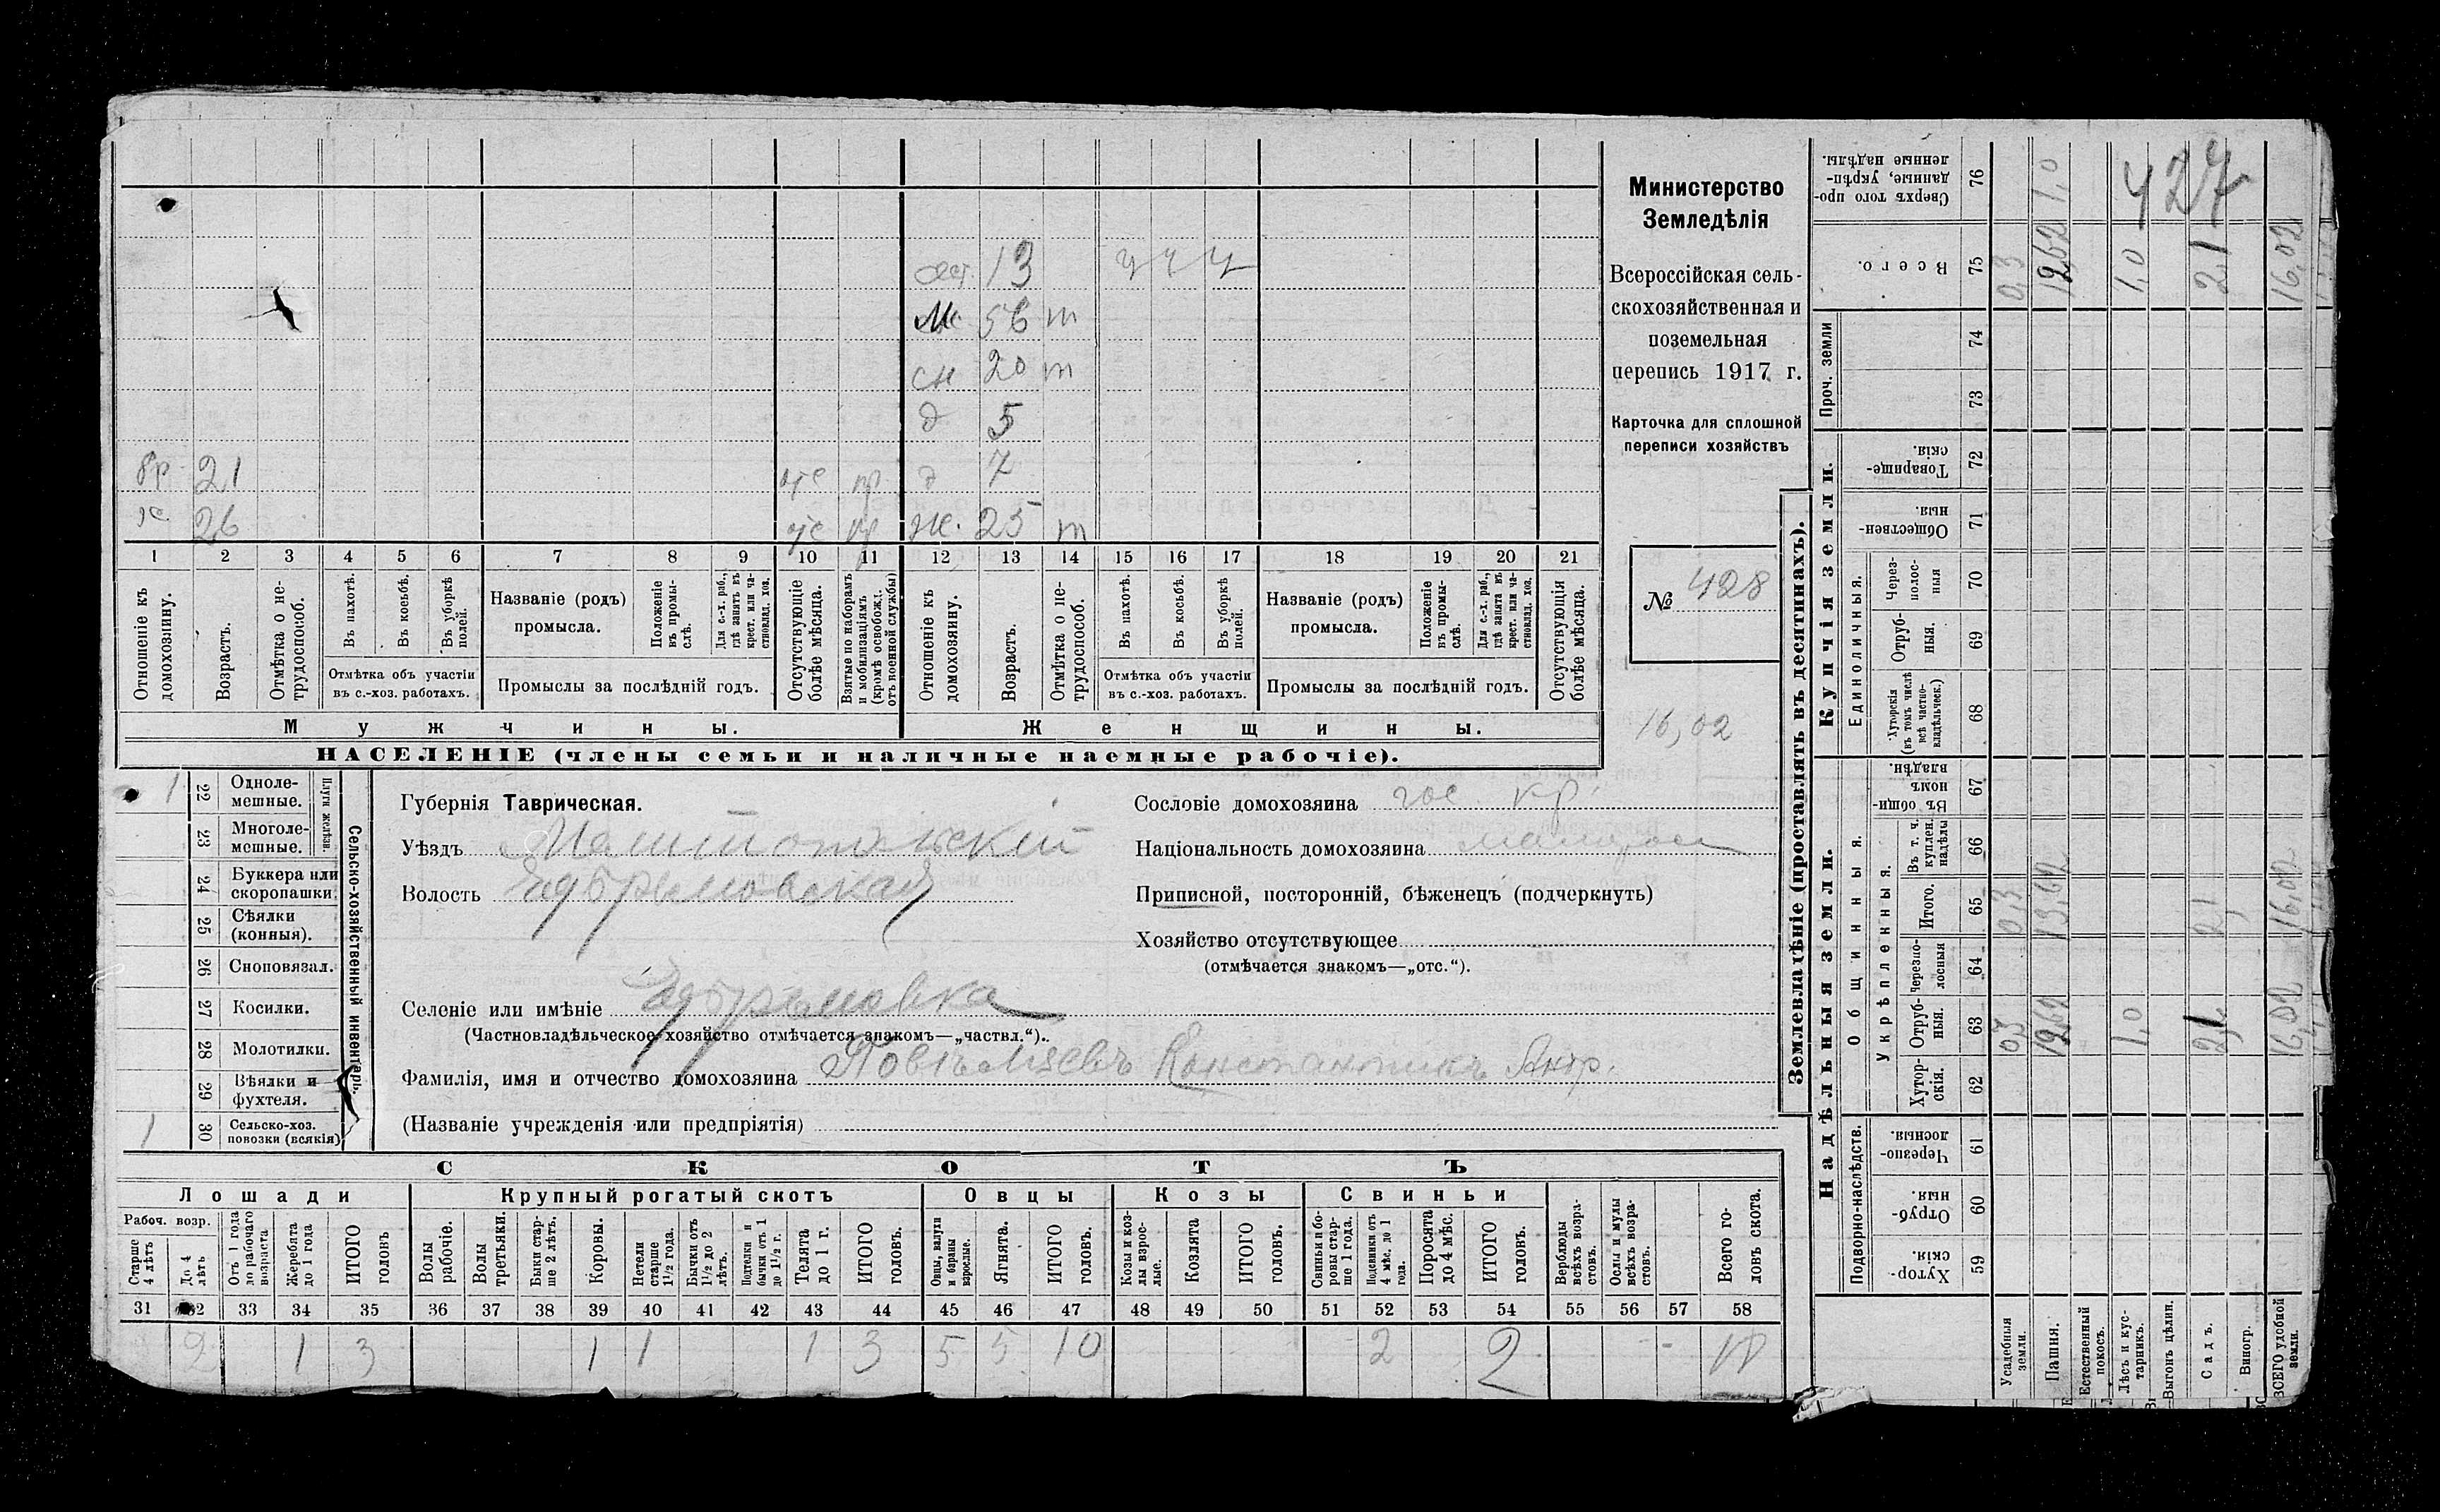 Министерство
Земледѣлія
Всероссійская сель-
скохозяйственная и
поземельная
перепись 1917 г.
Карточка для сплошной
переписи хозяйствъ
№ 428
16,02
427
сест. 13
м. 56 т
сн 20 т
д 5
бр. 21 отс пр д 7
х. 26 отс пр ж. 25 т
1 2 3 4 5 6 7 8 9 10 11 12 13 14 15 16 17 18 19 20 21
Отношеніе къ домохозяину.
Возрастъ.
Отмѣтка о не-трудоспособ.
Въ пахотѣ.
Въ косьбѣ.
Въ уборкѣ полей.
Отмѣтка объ участіи въ с.-хоз. работахъ.
Названіе (родъ) промысла.
Положеніе въ промы-слѣ.
Для с.-х. раб., гдѣ занятъ въ крест. или ча-стновлад. хоз.
Промыслы за послѣдній годъ.
Отсутствующіе болѣе мѣсяца.
Взятые по наборамъ и мобилизаціямъ (кромѣ освобожд. отъ военной службы)
Отношеніе къ домохозяину.
Возрастъ.
Отмѣтка о не-трудоспособ.
Въ пахотѣ.
Въ косьбѣ.
Въ уборкѣ полей.
Отмѣтка объ участіи въ с.-хоз. работахъ.
Названіе (родъ) промысла.
Положеніе въ промы-слѣ.
Для с.-х. раб., гдѣ занята въ крест. или ча-стновлад. хоз.
Промыслы за послѣдній годъ.
Отсутствующія болѣе мѣсяца.
Мужчины. Женщины.
НАСЕЛЕНІЕ (члены семьи и наличные наемные рабочіе).
Сельско-хозяйственный инвентарь.
Плуги желѣзн.
1 22 Одноле-мешные.
23 Многоле-мешные.
24 Буккера или скоропашки
25 Сѣялки (конныя).
26 Сноповязал.
27 Косилки.
28 Молотилки.
29 Вѣялки и фухтеля.
1 30 Сельско-хоз. повозки (всякія)
Губернія Таврическая.
Уѣздъ Мелитопольскій
Волость Ефремовская
Селеніе или имѣніе Ефремовка
(Частновладѣльческое хозяйство отмѣчается знакомъ—„частвл.“).
Фамилія, имя и отчество домохозяина Константинъ Андр.
(Названіе учрежденія или предпріятія)
Сословіе домохозяина гос. кр.
Національность домохозяина малорос
Приписной, посторонній, бѣженецъ (подчеркнуть)
Хозяйство отсутствующее
(отмѣчается знакомъ—„отс.“).
СКОТЪ
Лошади Крупный рогатый скотъ Овцы Козы Свиньи
Рабоч. возр.
Старше 4 лѣтъ
До 4 лѣтъ
Отъ 1 года до рабочаго возраста
Жеребята до 1 года
ИТОГО головъ
Волы рабочіе.
Волы третьяки.
Быки стар-ше 2 лѣтъ.
Коровы.
Нетели старше 1½ года.
Бычки отъ 1½ до 2 лѣтъ.
Подтелки и бычки отъ 1 до 1½ г.
Телята до 1 г.
ИТОГО головъ.
Овцы, валухи и бараны взрослые.
Ягнята.
ИТОГО головъ.
Козы и коз-лы взрос-лые.
Козлята
ИТОГО головъ.
Свиньи и бо-ровы стар-ше 1 года.
Подсвинки отъ 4 мѣс. до 1 года.
Поросята до 4 мѣс.
ИТОГО головъ.
Верблюды всѣхъ возра-стовъ.
Ослы и мулы всѣхъ возра-стовъ.
Всего го-ловъ скота.
31 32 33 34 35 36 37 38 39 40 41 42 43 44 45 46 47 48 49 50 51 52 53 54 55 56 57 58
2 1 3 1 1 1 3 5 5 10 2 2
Землевладѣніе (проставлять въ десятинахъ).
Надѣльныя земли. Купчія земли. Проч. земли
Подворно-наслѣдств. Общинныя. Единоличныя.
Укрѣпленныя.
Хутор-скія. 59
Отруб-ныя. 60
Черезпо-лосныя. 61
Хутор-скія. 62
Отруб-ныя. 63
Черезпо-лосныя 64
Итого. 65
Въ т. ч. куплен. надѣлы 66
Въ общин-номъ владѣн. 67
Хуторскія (въ томъ числѣ всѣ частно-владѣльческ.) 68
Отруб-ныя. 69
Через-полос-ныя 70
Обществен-ныя. 71
Товарище-скія. 72
73
74
Всего. 75
Сверхъ того про-данные, укрѣп-ленные надѣлы. 76
Усадебныя земли. 0,3 0,3 0,3
Пашня. 12,62 13,62 12,62 1,0
Естественный покосъ.
Лѣсъ и кус-тарникъ. 1,0 1,0
Выгонъ цѣлин.
Садъ. 2,1 2,1 2,1
Виногр.
ВСЕГО удобной земли. 16,02 16,02 16,02